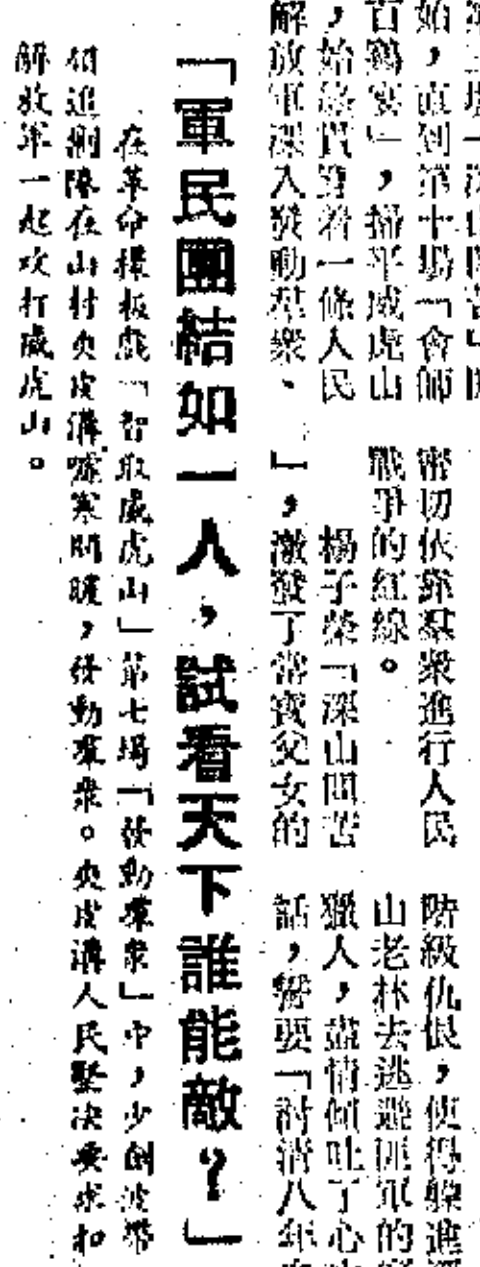 場「深山問苦」開
始，直到第十場「會師
百鷄宴」，掃平威虎山
，始終貫穿着一條人民
解放軍深入發動羣衆、
密切依靠羣衆進行人民
戰爭的紅線。
楊子榮「深山問苦
」，激發了常寶父女的
階級仇恨，使得躲進
山老林去逃避匪軍的
獵人，盡情傾吐了心
話，誓要「討清八年
「軍民團結如一人，試看天下誰能敵？」
在革命樣板戲「智取威虎山」第七場「發動羣衆」中，少劍波帶
領追剿隊在山村夾皮溝噓寒問暖，發動羣衆。夾皮溝人民堅決要求和
解放軍一起攻打威虎山。